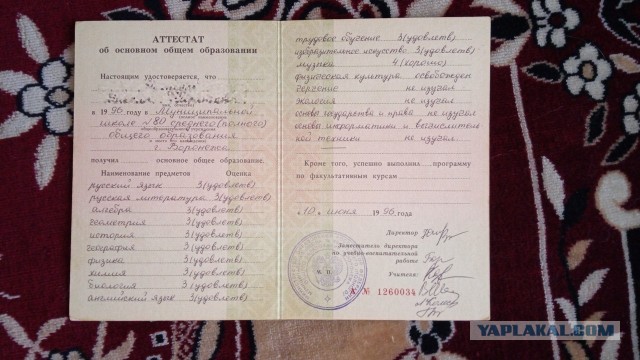 АТТЕСТАТ
об основном общем образовании
Настоящим удостоверяется, что
в 1996 году в Муниципальной
школе №80 среднего (полного)
общего образования
г. Воронежа
получил основное общее образование.
Наименование предметов Оценка
русский язык 3(удовлетв)
русская литература 3(удовлетв)
алгебра 3(удовлетв)
геометрия 3(удовлетв)
история 3(удовлетв)
география 3(удовлетв)
физика 3(удовлетв)
химия 3(удовлетв)
биология 3(удовлетв)
английский язык 3(удовлетв)
трудовое обучение 3(удовлетв)
изобразительное искусство 3(удовлетв)
музыка 4(хорошо)
физическая культура освобожден
черчение не изучал
экология не изучал
основа государства и права не изучал
основа информатики и вычислитель
ной техники не изучал
Кроме того, успешно выполнил программу
по факультативным курсам
10 июня 1996 года
Директор
Заместитель директора
по учебно-воспитательной
работе
Учителя:
А № 1260034
YAPLAKAL.COM